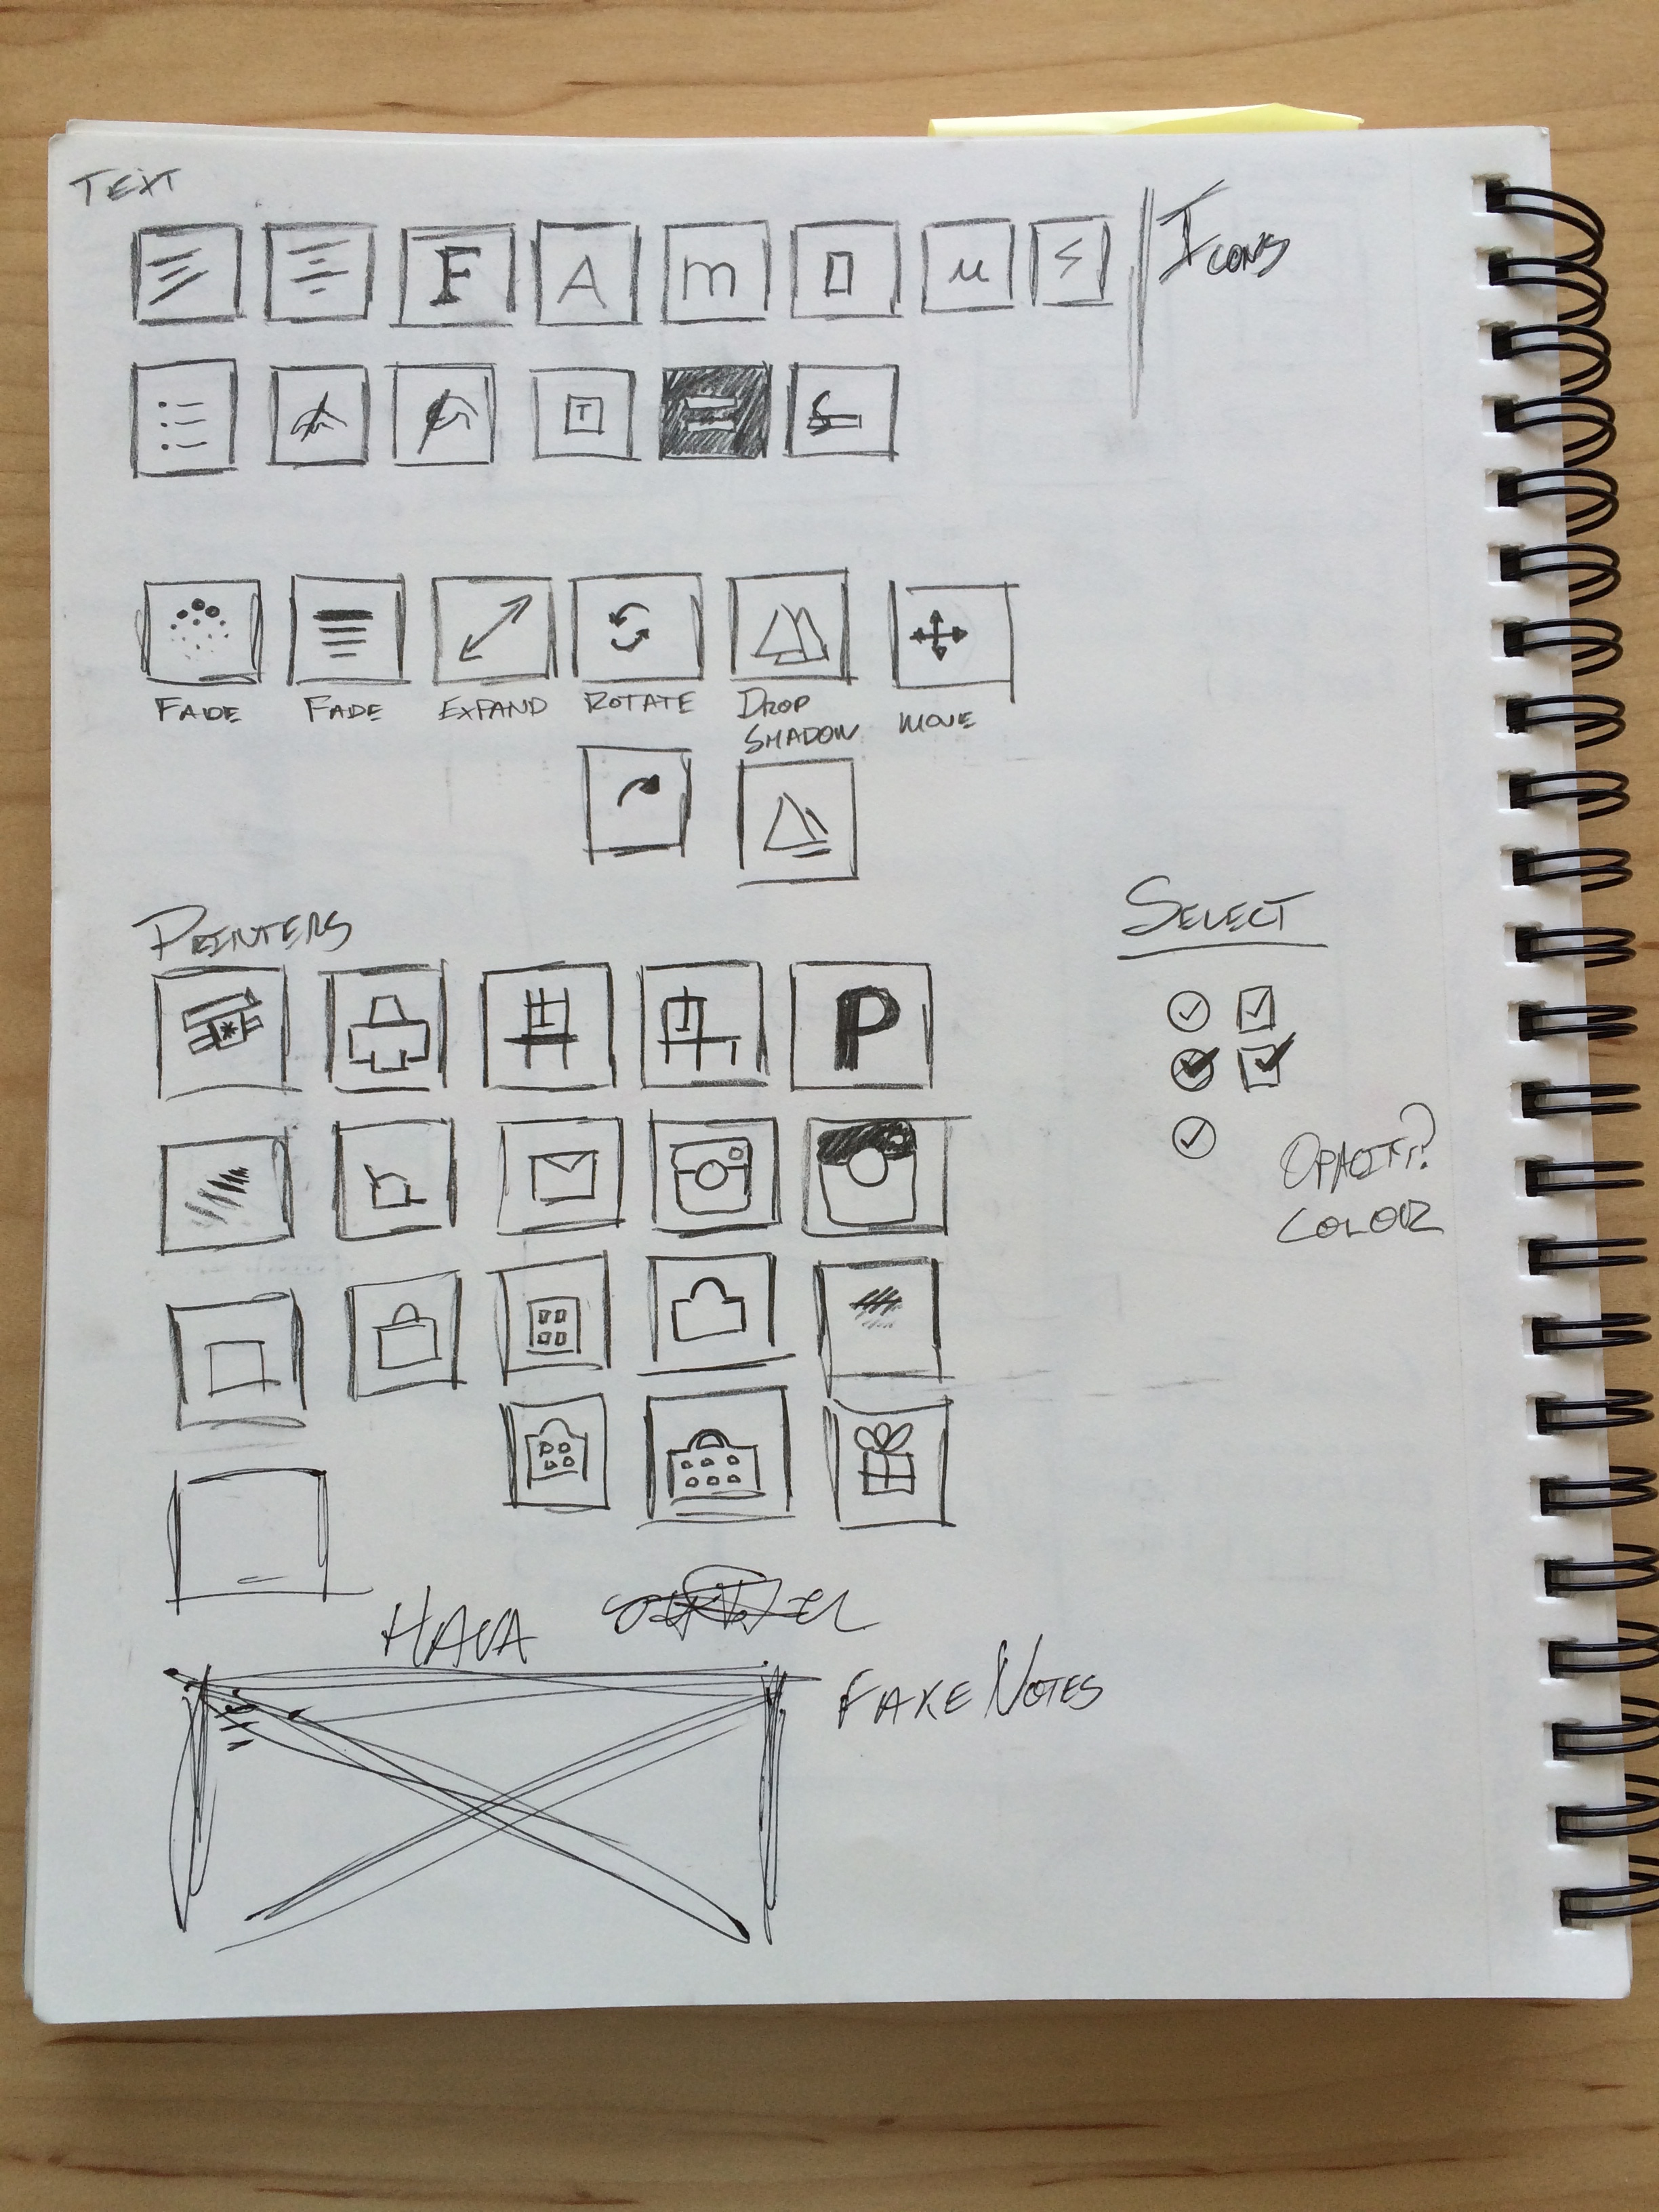 TEXT
F A m O u S
ICONS
T
FADE FADE EXPAND ROTATE DROP SHADOW MOVE
PRINTERS
SELECT
P
OPACITY?
COLOUR
FAKE NOTES